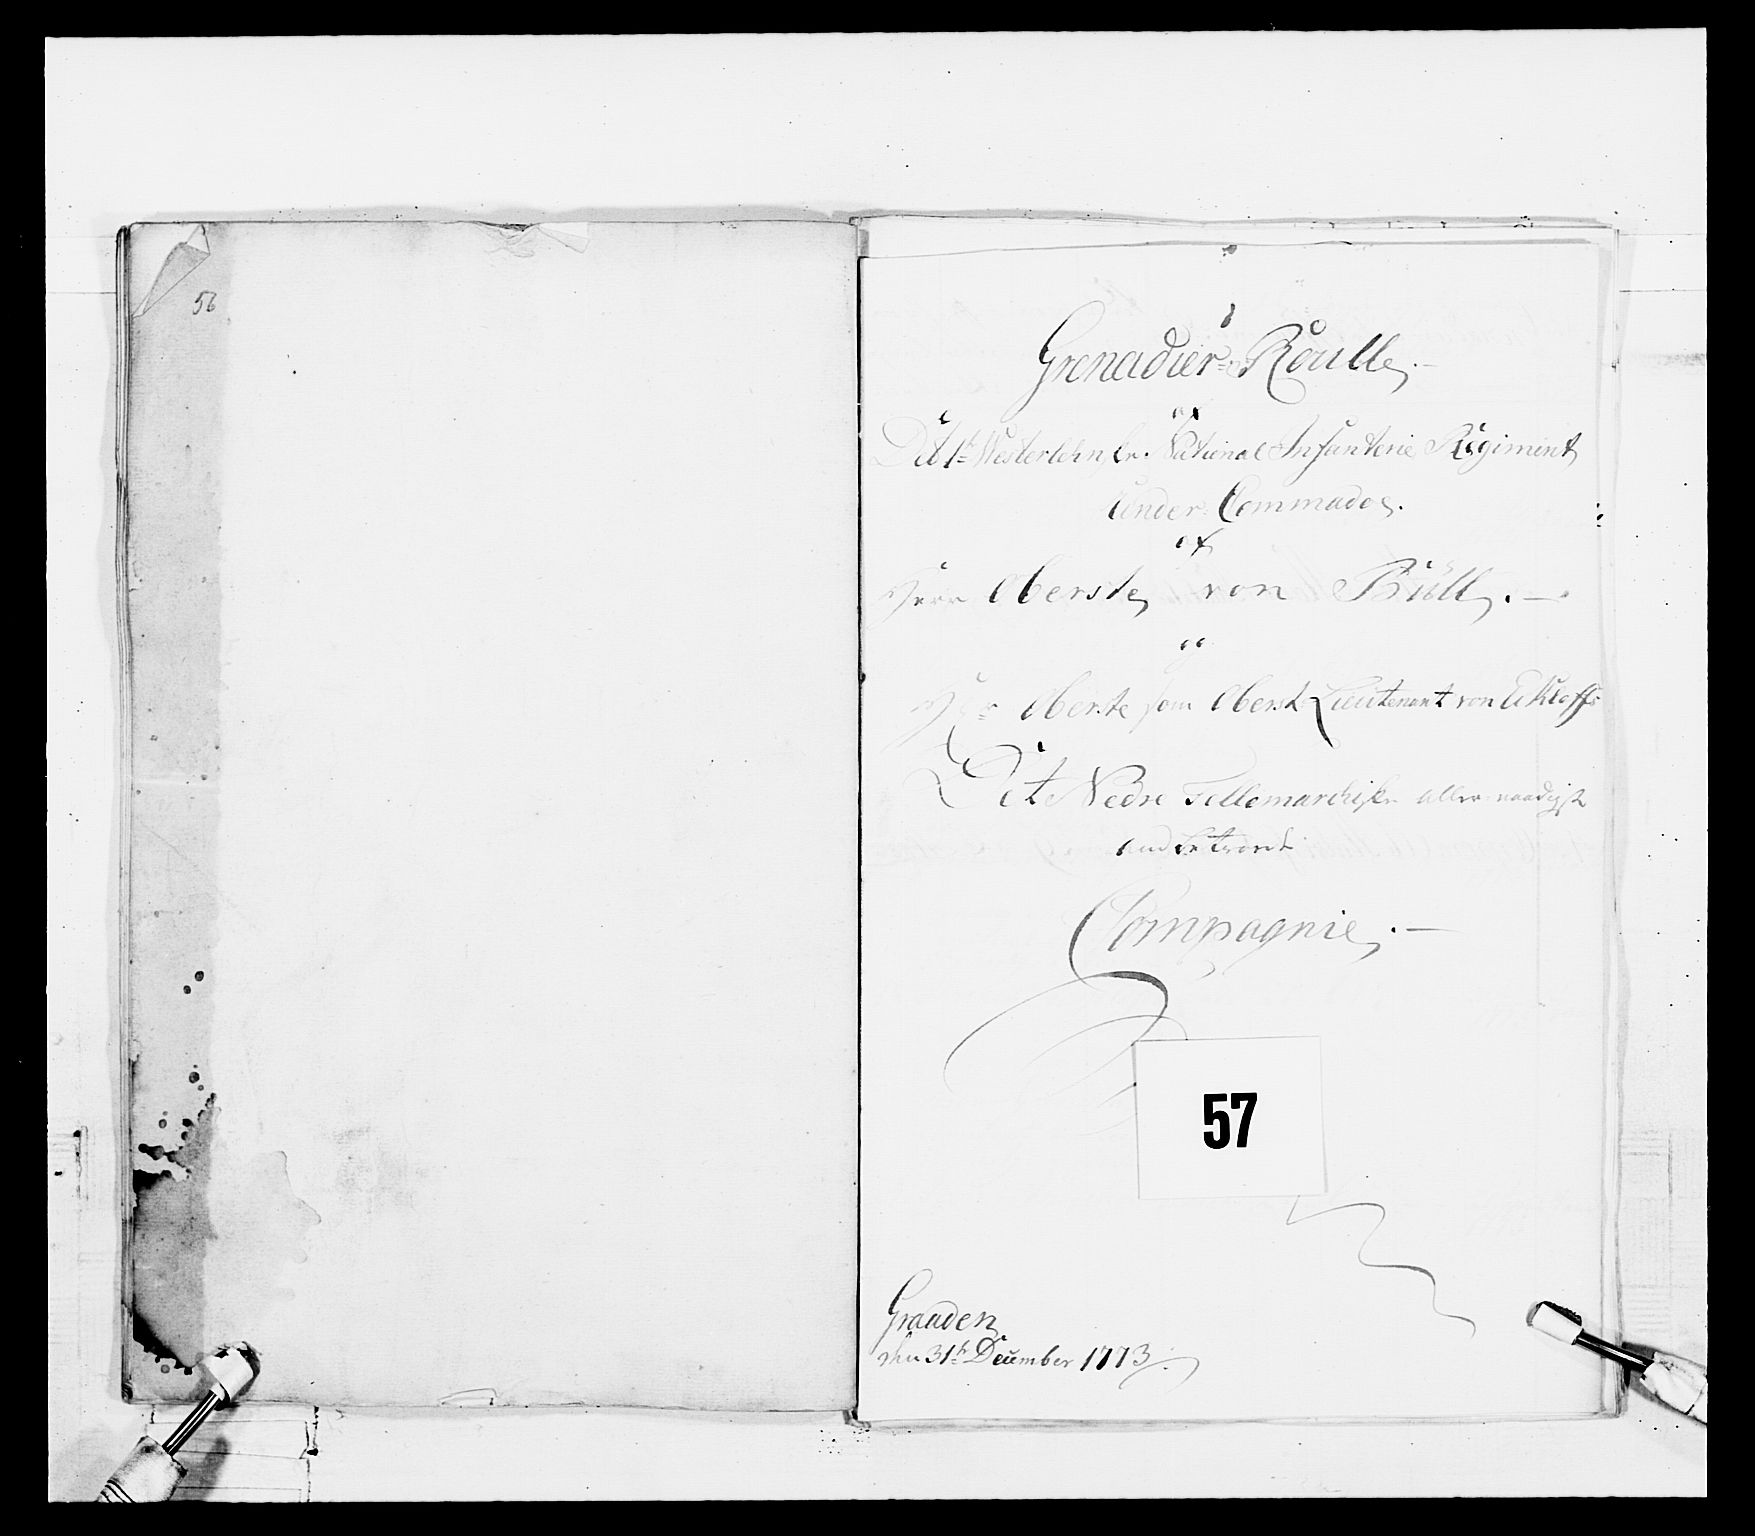 56
Grenadier-Roulle.
af
Det 1te Westerlehnske National Infanterie Regiment
Under Commado.
af
Herr Oberste von Büll.
og
Herr Oberste som Oberst Lieutenant von
Det Nedre Tellemarchiske aller naadigst
anbetroede
Compagnie.
57
Graaden
den 31te December 1773.